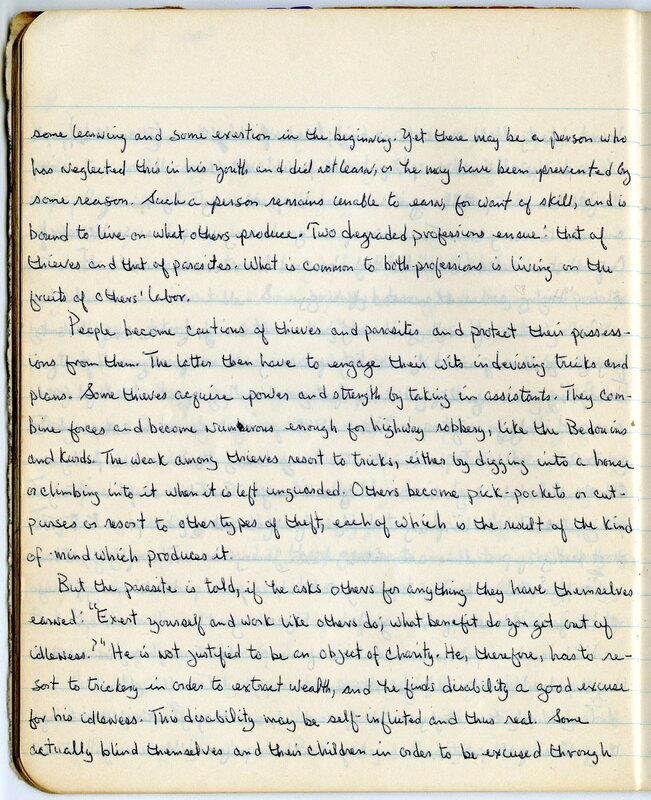 some learning and some exertion in the beginning. Yet there may be a person who
has neglected this in his youth and did not learn, or he may have been prevented by
some reason. Such a person remains unable to earn, for want of skill, and is
bound to live on what others produce. Two degraded professions ensue: that of
thieves and that of parasites. What is common to both professions is living on the
fruits of others' labor.
People become cautious of thieves and parasites and protect their possess-
ions from them. The latter then have to engage their wits in devising tricks and
plans. Some thieves acquire power and strength by taking in assistants. They com-
bine forces and become numerous enough for highway robbery, like the Bedouins
and Kurds. The weak among thieves resort to tricks, either by digging into a house
or climbing into it when it is left unguarded. Others become pick-pockets or cut-
purses or resort to other types of theft, each of which is the result of the kind
of mind which produces it.
But the parasite is told, if he asks others for anything they have themselves
earned: "Exert yourself and work like others do; what benefit do you get out of
idleness?" He is not justified to be an object of charity. He, therefore, has to re-
sort to trickery in order to extract wealth, and he finds disability a good excuse
for his idleness. This disability may be self-inflicted and thus real. Some
actually blind themselves and their children in order to be excused through